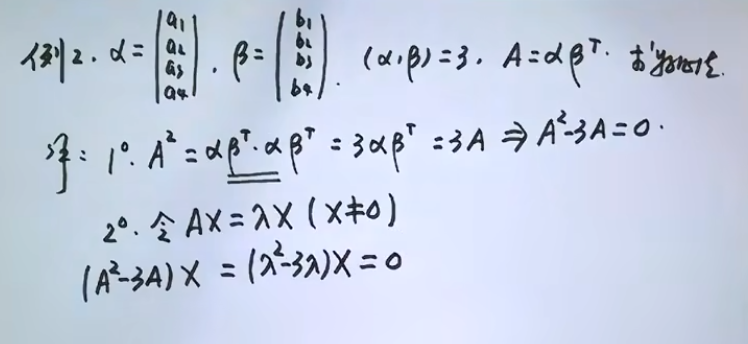 例2. α = (a₁ a₂ a₃ a₄), β = (b₁ b₂ b₃ b₄). (α,β)=3. A=αβᵀ. 求
解: 1°. A² = αβᵀ·αβᵀ = 3αβᵀ = 3A ⇒ A²-3A=0.
2°. 令 AX=λX (X≠0)
(A²-3A)X = (λ²-3λ)X = 0